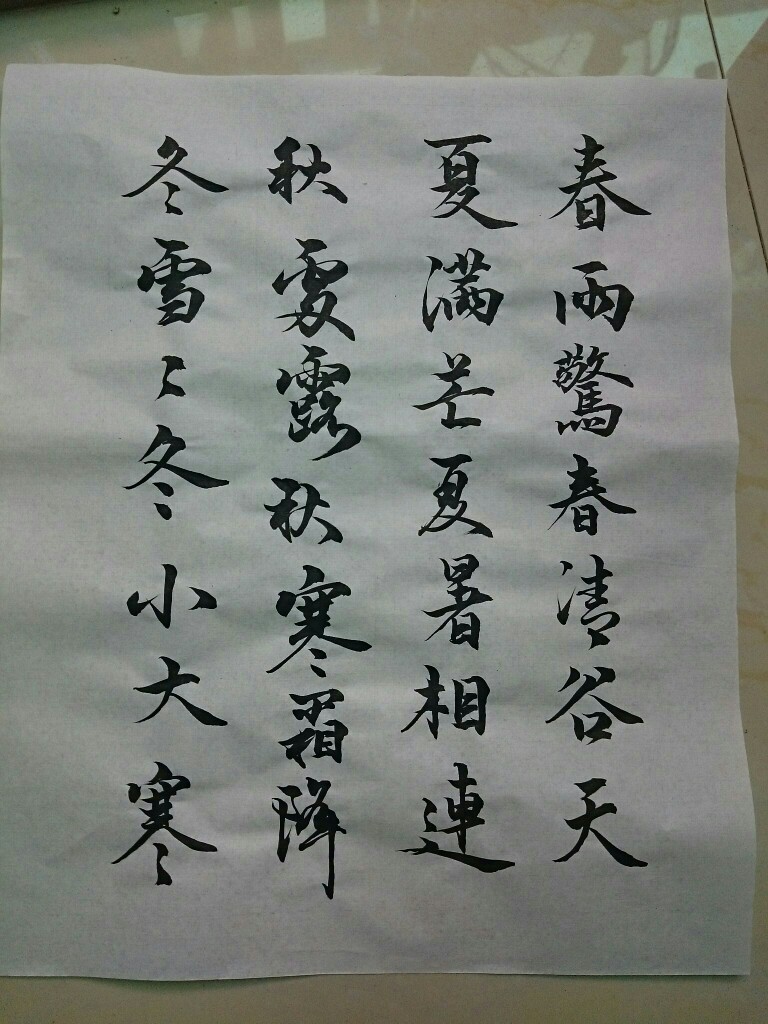 春雨驚春清谷天
夏滿芒夏暑相連
秋處露秋寒霜降
冬雪々冬小大寒